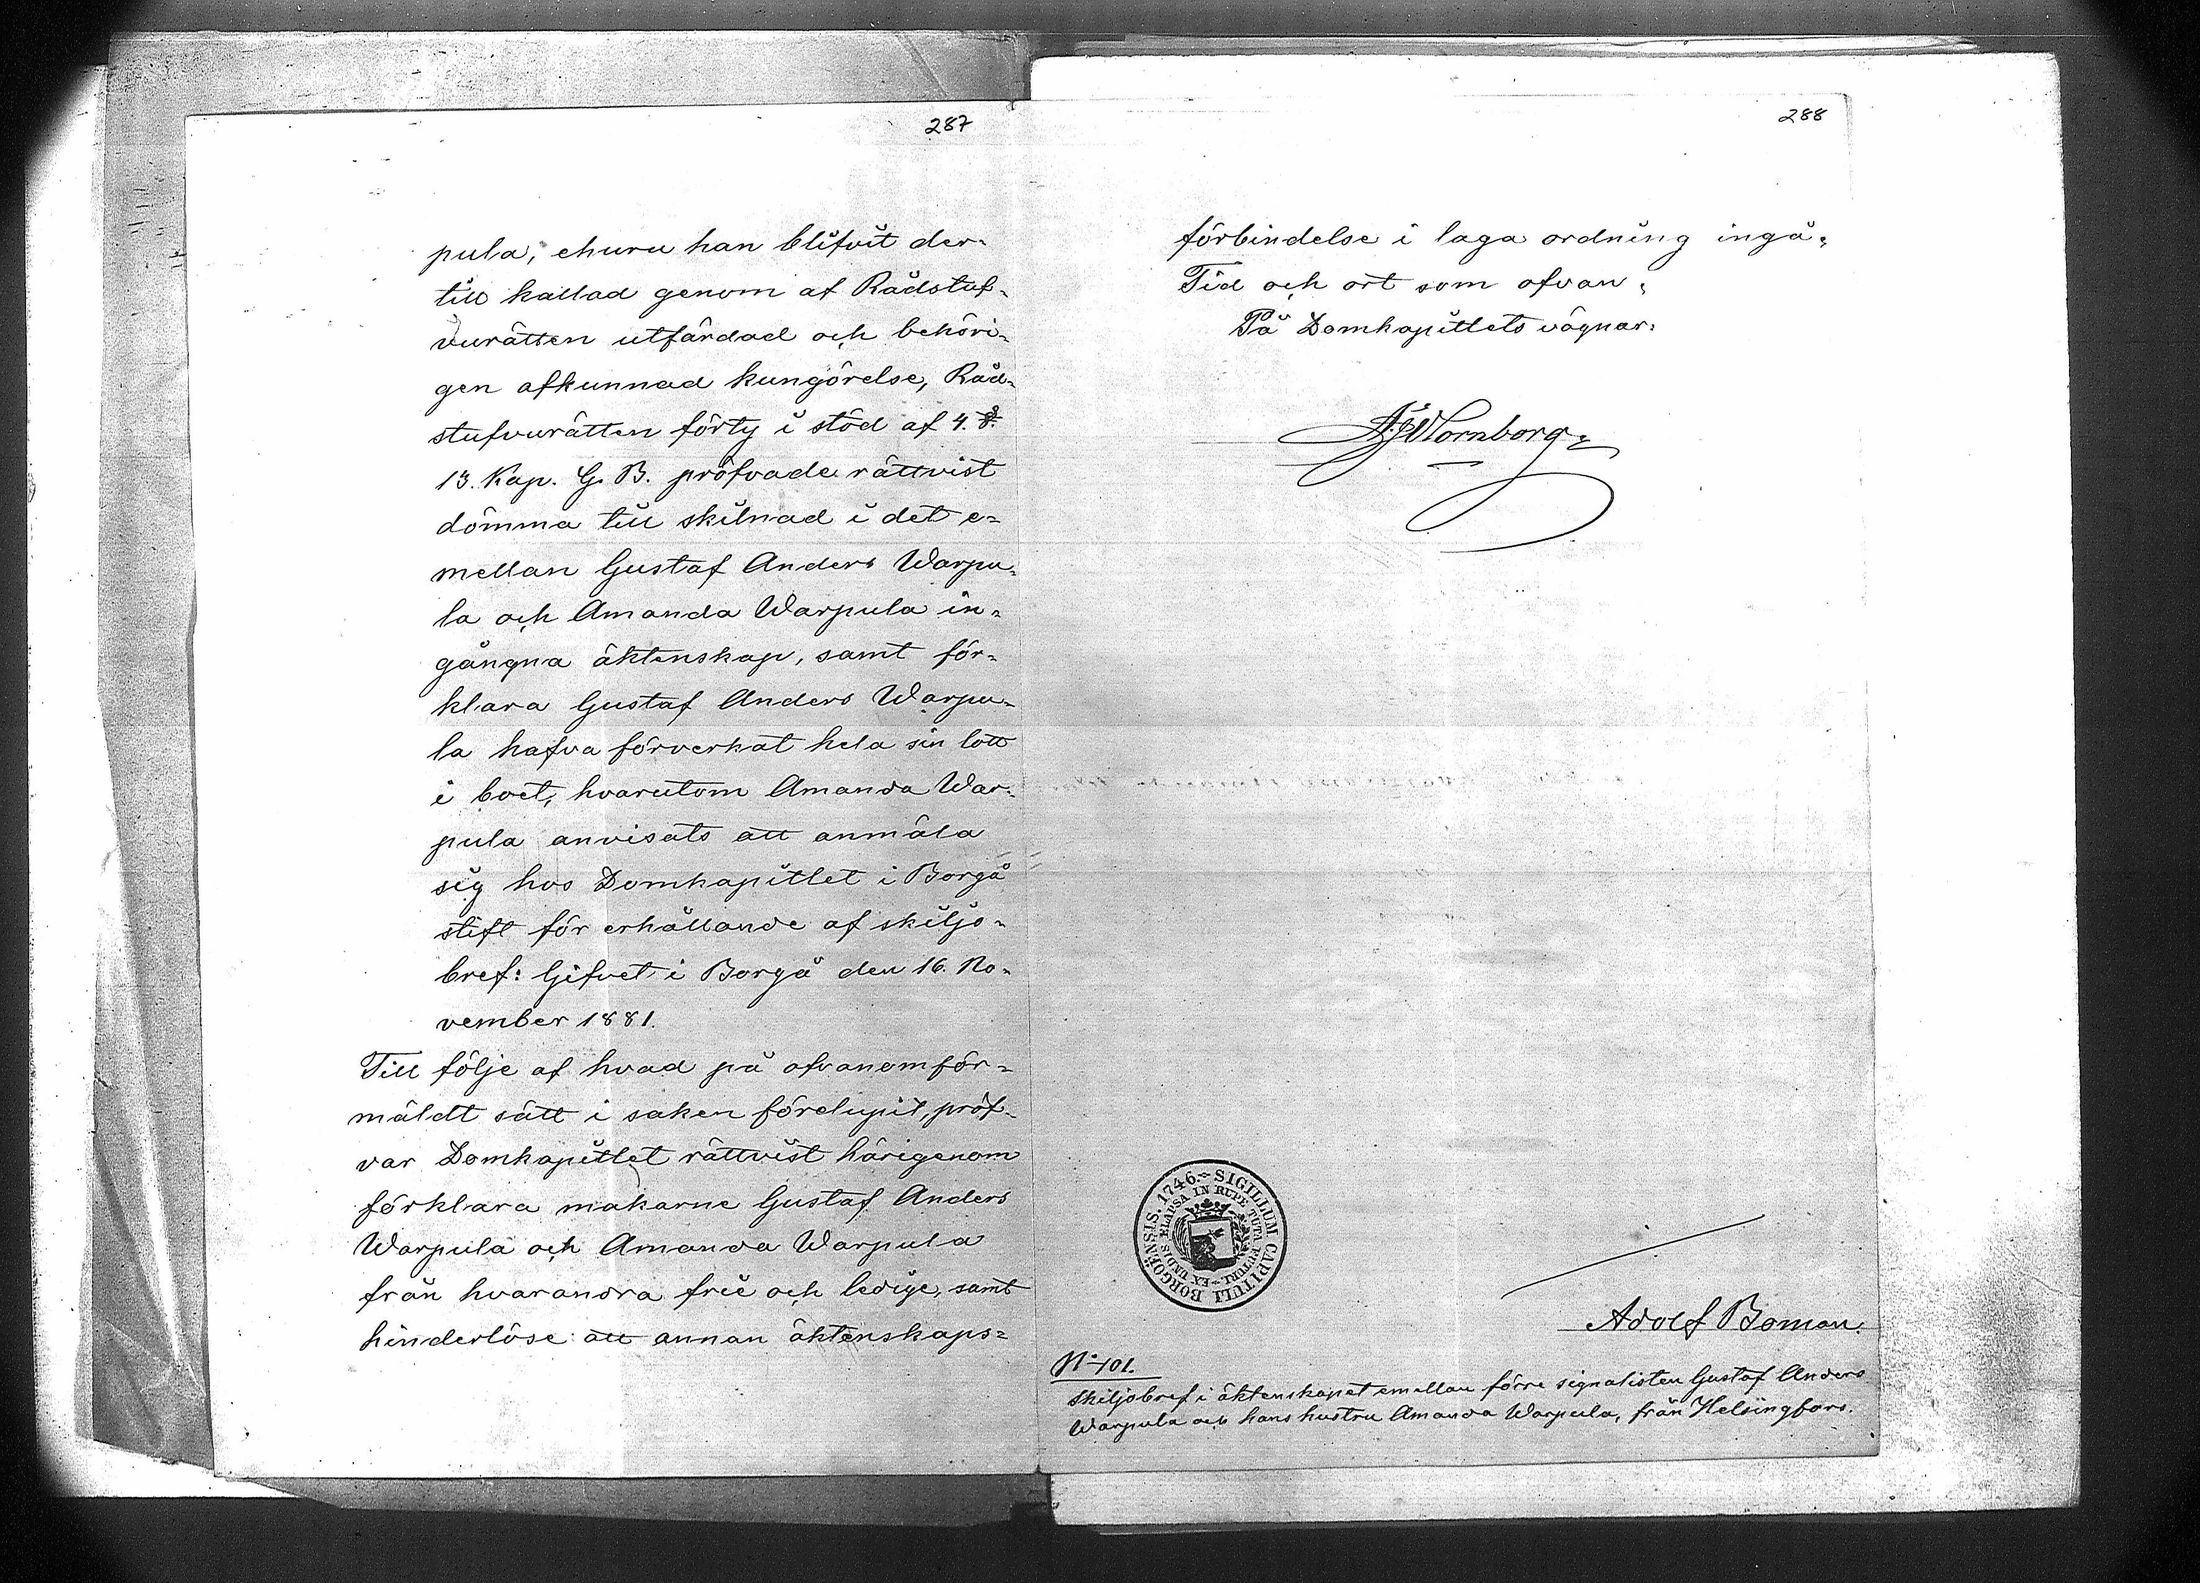 287
pula, ehuru han blifvit der-
till kallad genom af Rådstuf-
vurätten utfärdad och behöri-
gen afkunnad kungörelse, Råd-
stufvurätten förty i stöd af 4. §.
13. Kap. G. B. pröfvade rättvist
dömma till skilnad i det e-
mellan Gustaf Anders Warpu-
la och Amanda Warpula in-
gångna äktenskap, samt för-
klara Gustaf Anders Warpu-
la hafva förverkat hela sin lott
i boet, hvarutom Amanda War-
pula anvisats att anmäla
sig hos Domkapitlet i Borgå
stift för erhållande af skiljo-
bref: Gifvet i Borgå den 16. No-
vember 1881.
Till följe af hvad på ofvanomför-
mäldt sätt i saken förelupit, pröf-
var Domkapitlet rättvist härigenom
förklara makarne Gustaf Anders
Warpula och Amanda Warpula
från hvarandra frie och ledige, samt
hinderlöse att annan äktenskaps-
288
förbindelse i laga ordning ingå.
Tid och ort som ofvan.
På Domkapitlets vägnar:
A. J. Hornborg
SIGILLUM CAPITULI BORGOËNSIS. 1746.
EX UNDIS ELAPSA IN RUPE TUTA FUTURI
Adolf Boman.
No 101.
Skiljobref i äktenskapet emellan förre signalisten Gustaf Anders
Warpula och hans hustru Amanda Warpula, från Helsingfors.